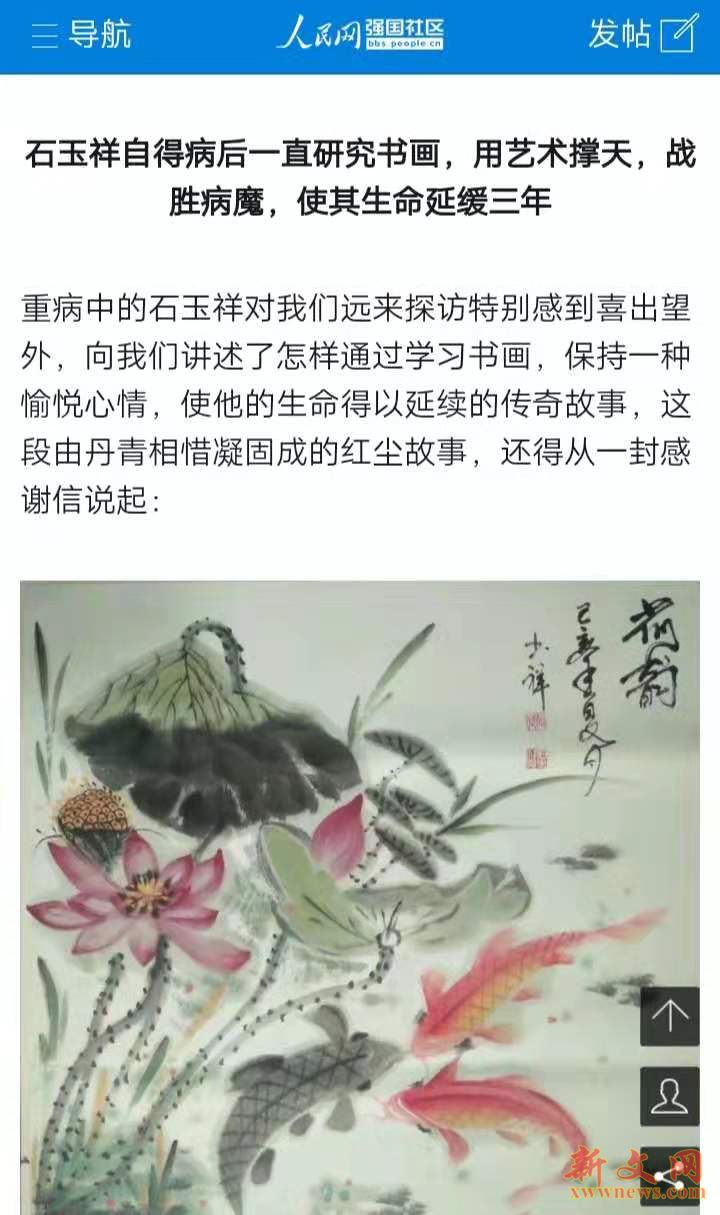 导航
人民网 强国社区
bbs.people.cn
发帖
石玉祥自得病后一直研究书画，用艺术撑天，战
胜病魔，使其生命延缓三年
重病中的石玉祥对我们远来探访特别感到喜出望
外，向我们讲述了怎样通过学习书画，保持一种
愉悦心情，使他的生命得以延续的传奇故事，这
段由丹青相惜凝固成的红尘故事，还得从一封感
谢信说起：
荷韵
己亥年夏月
玉祥
新文网
xwwnews.com